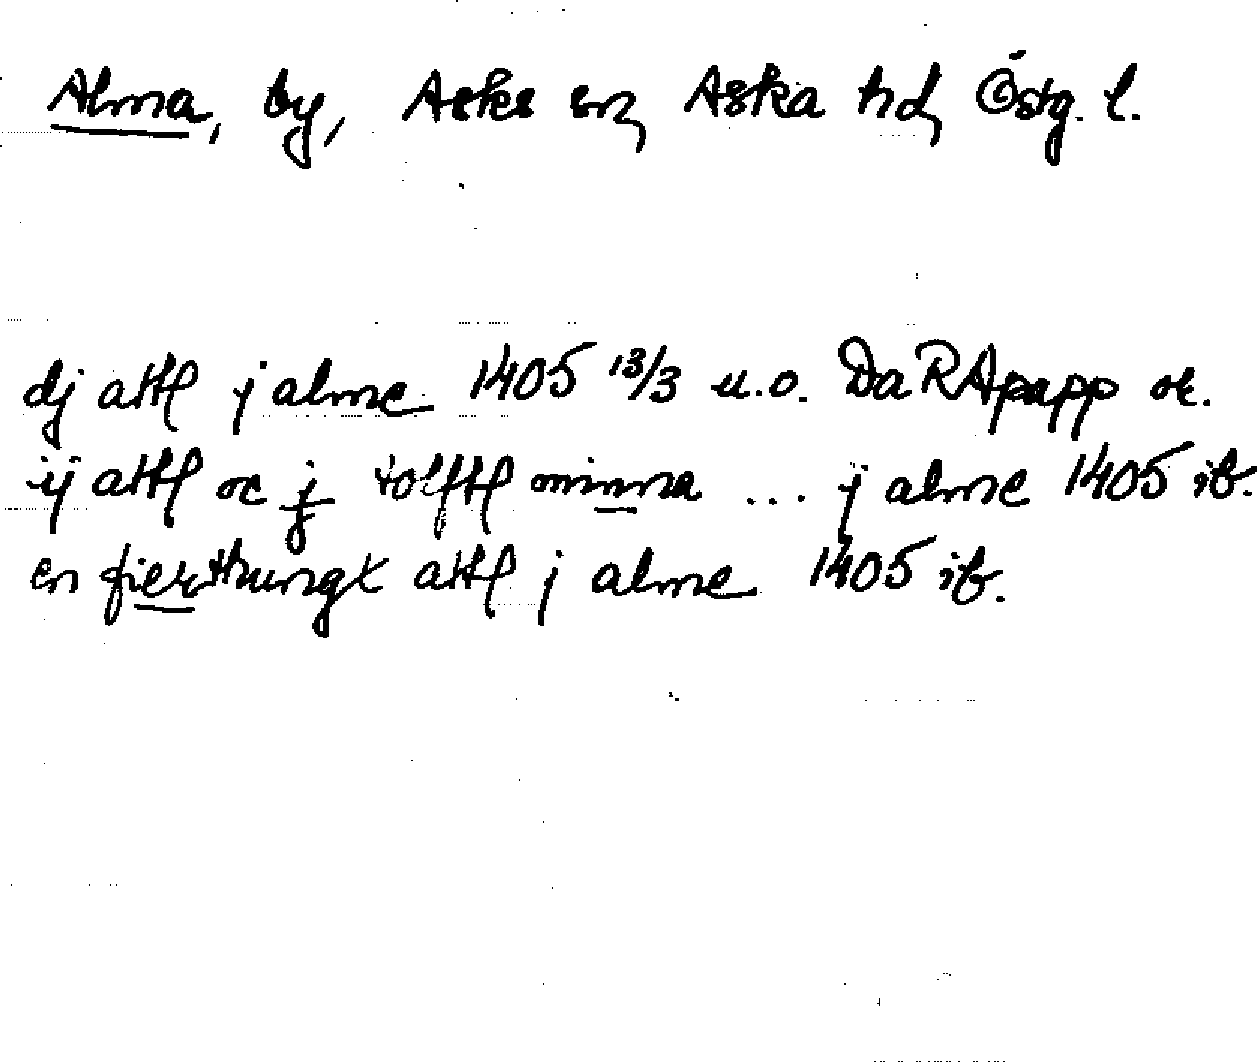 Alma, by, Aska sn, Aska hd, Östg. l.
dj attl j alme 1405 13/3 u.o. Da RApapp or.
ij attl oc j tolfftl minna ... j alme 1405 ib.
en fierthungx attl j alme 1405 ib.